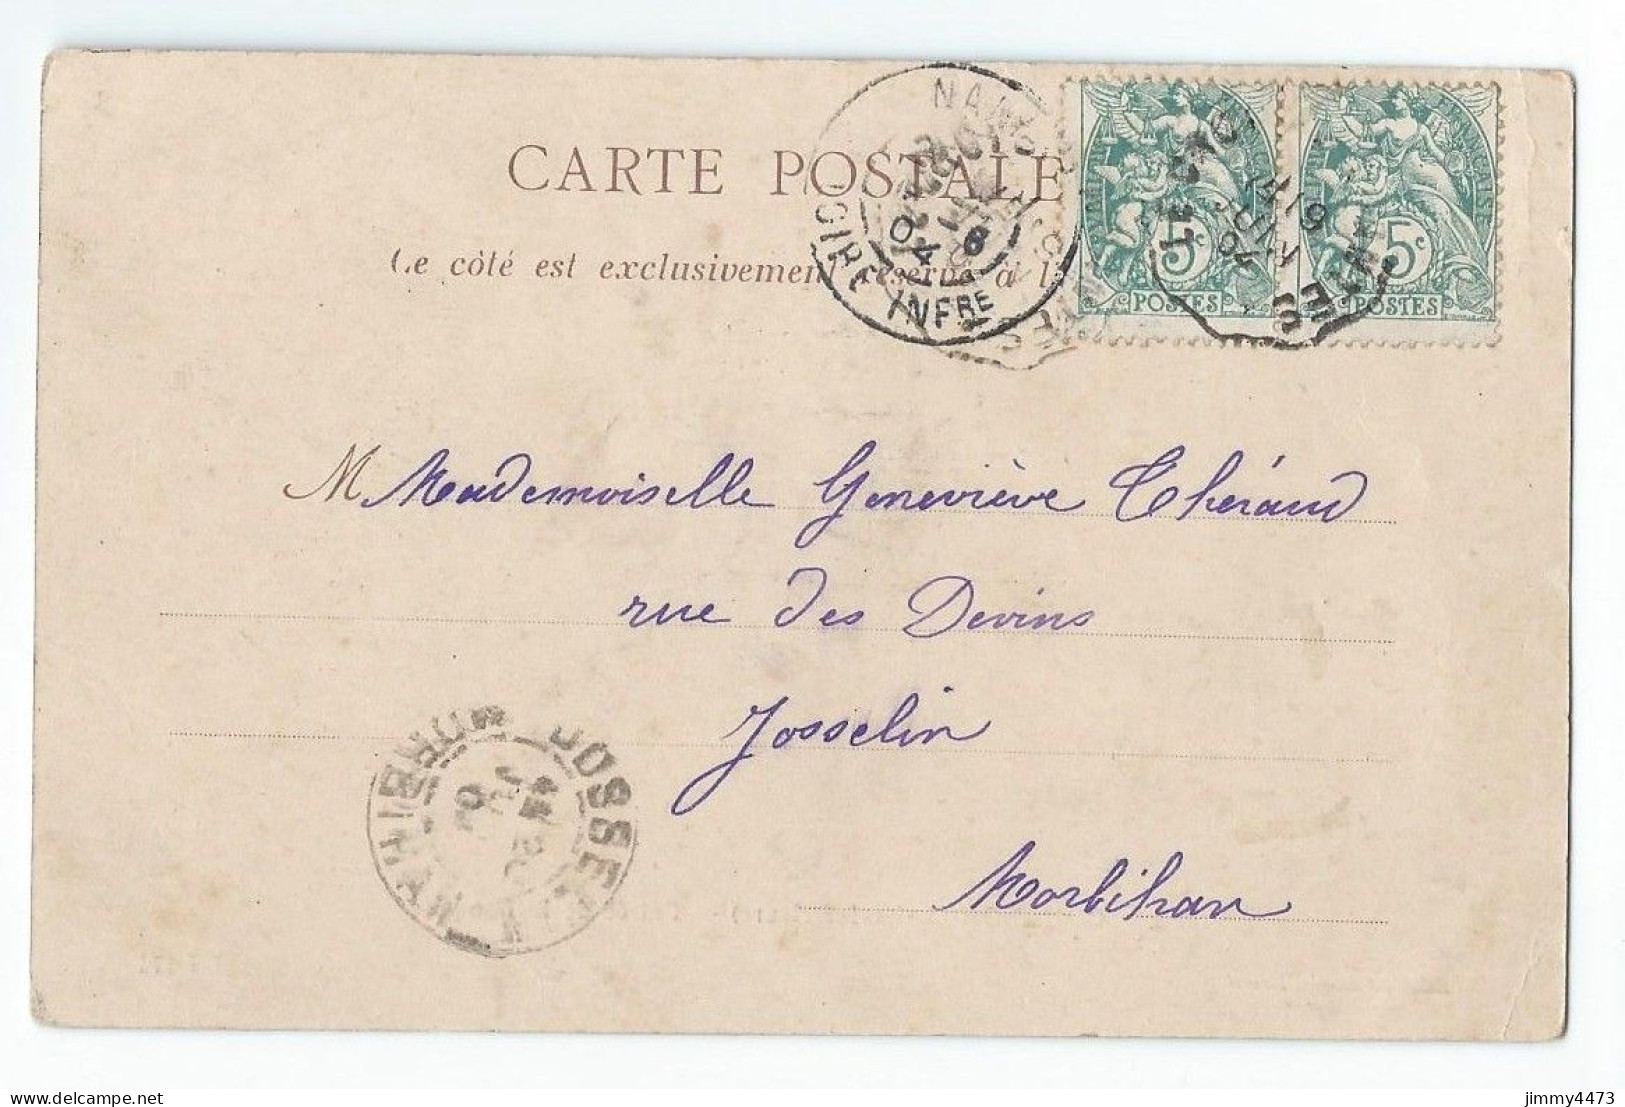 CARTE POSTALE
Le côté est exclusivement réservé à l'
NANTES
LOIRE INFRE
5c 5c
POSTES POSTES
JUIN
04
M Mademoiselle Geneviève Théraud
rue des Devins
Josselin
Morbihan
JOSSELIN
MORBIHAN
jimmy4473